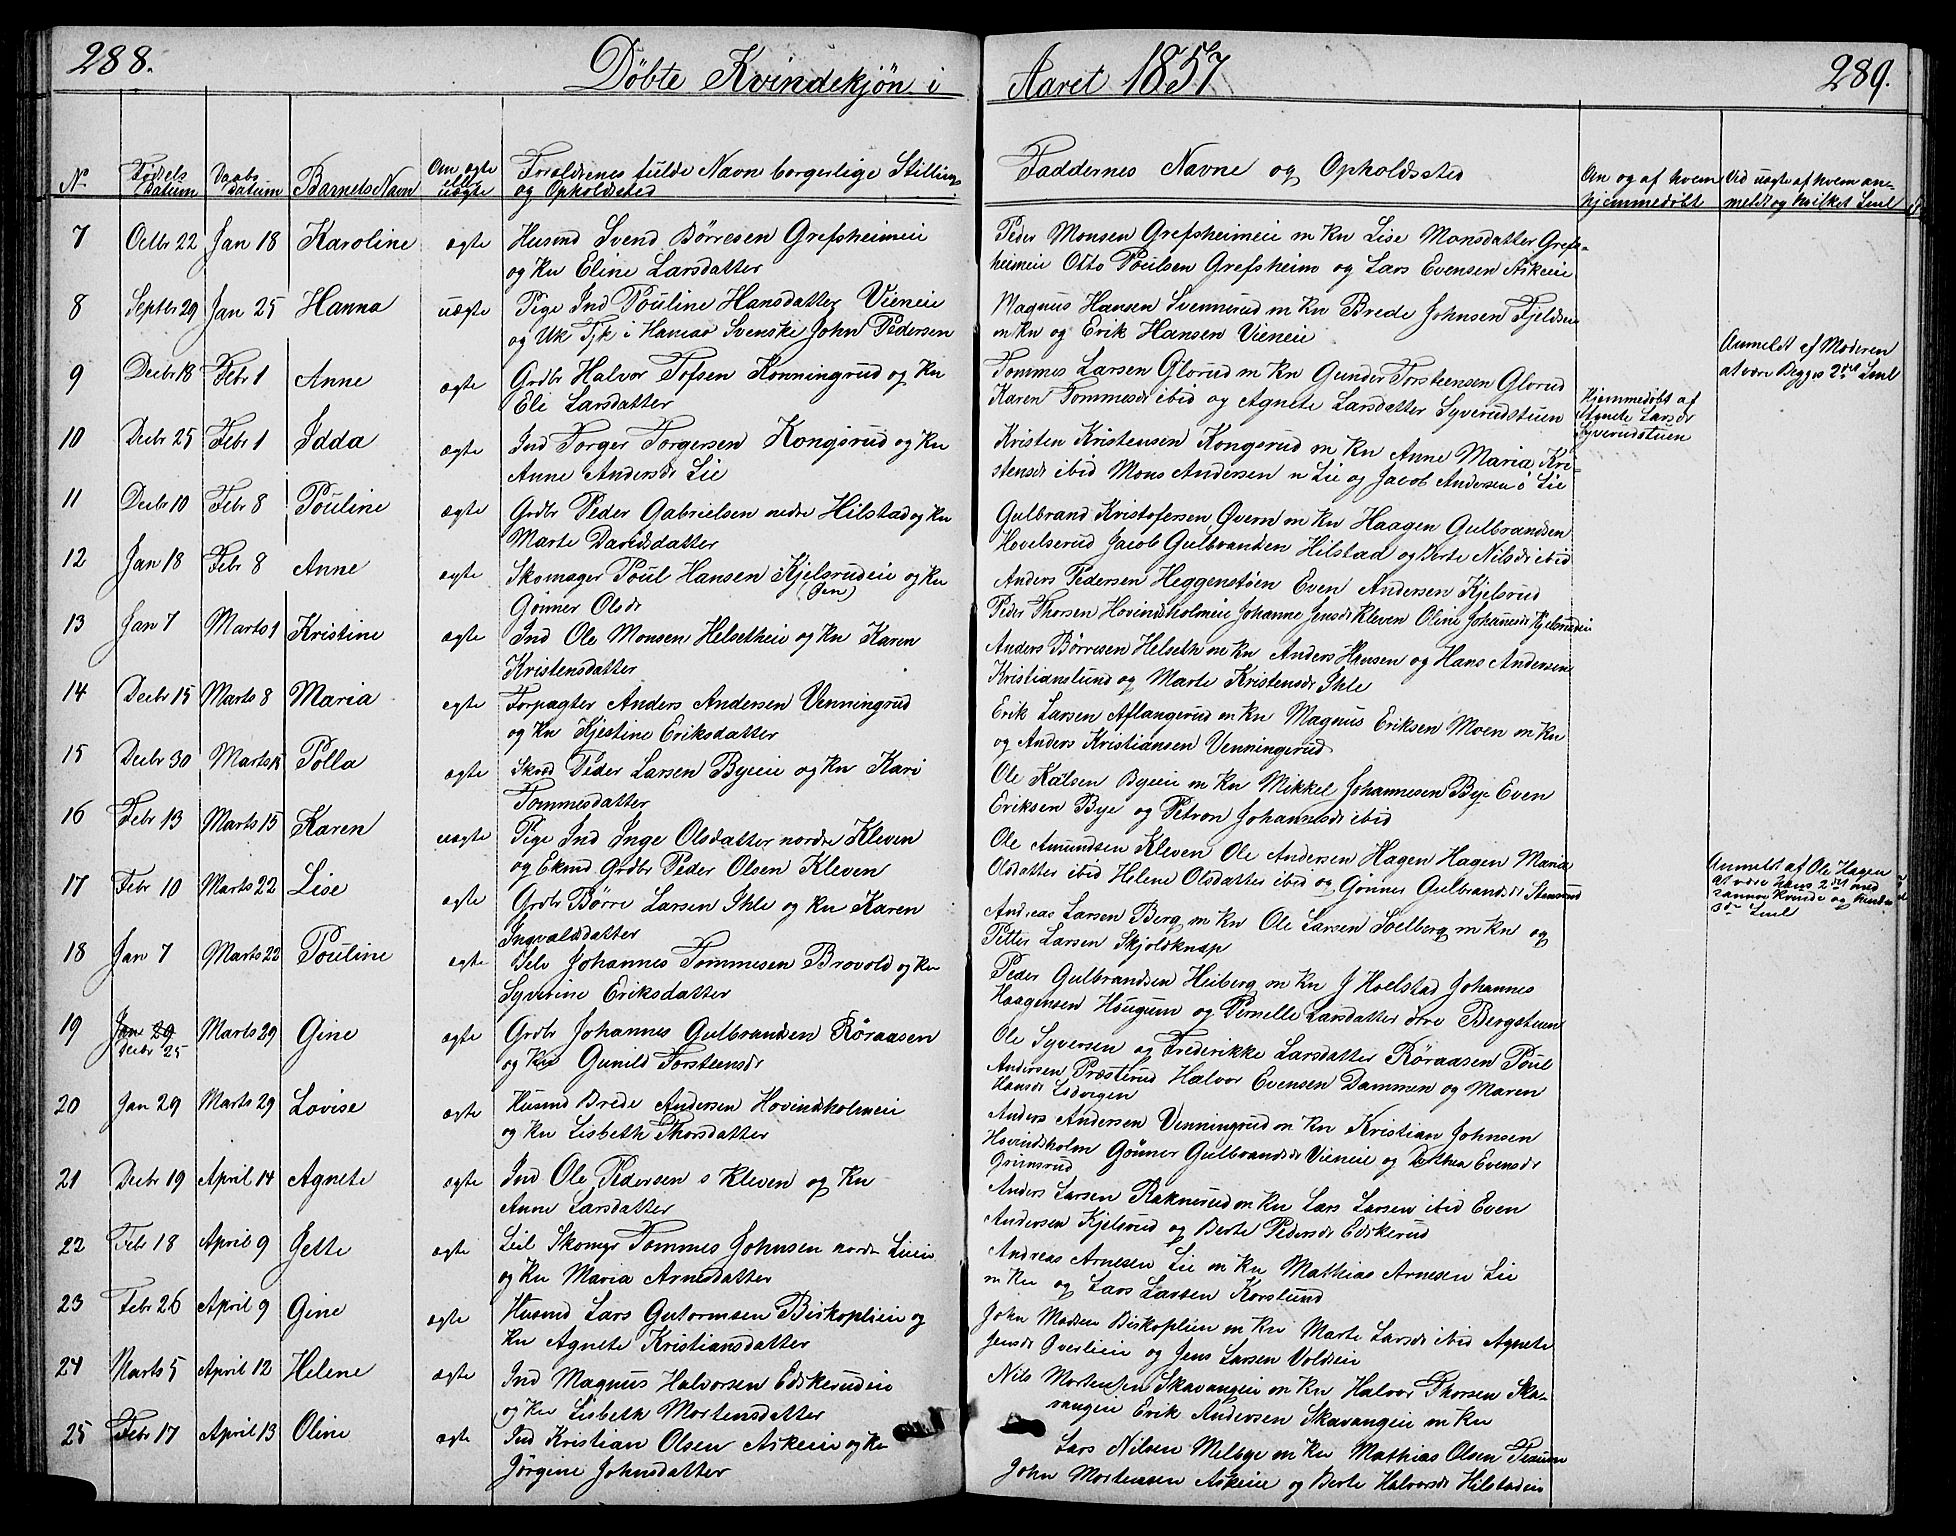 288.
Döbte Kvindekjön i
Aaret 1857
289.
No
Födsels Datum
Daabs datum
Barnets Navn
Om ægte ell uægte
Forældrenes fulde Navn borgerlige Stilling
og Opholdssted
Faddernes Navne og Opholdssted
Om og af hvem
hjemmedöbt
Ved uægte af hvem an-
meldt og hvilket Leul
7 Octbr 22 Jan 18 Karoline ægte Husmd Svend Börresen Grefsheimeie
og Kn Eline Larsdatter
Peder Monsen Grefsheimeie m Kn Lise Monsdatter Grefs-
heimeie Otto Poulsen Grefsheim og Lars Evensen Askeie
8 Septbr 29 Jan 25 Hanna uægte Pige Ind Pouline Hansdatter Vieneie
og Uk Tjk i Hamar Svenske John Pedersen
Magnus Hansen Svennerud m Kn Brede Johnsen Fjeldsen
m Kn og Erik Hansen Vieneie
Anmeldt af Moderen
at være Begges 2det Leul
9 Decbr 18 Febr 1 Anne ægte Grdbr Halvor Tofsen Konningrud og Kn
Eli Larsdatter
Tommes Larsen Glorud m Kn Gunder Torstensen Glorud
Karen Tommesdr ibid og Agnete Larsdatter Syverudstuen
Hjemmedöbt af
Agnete Larsdr
Syverudstuen
10 Decbr 25 Febr 1 Idda ægte Ind Torger Torgersen Kongsrud og Kn
Anne Andersdr Lie
Kristen Kristensen Kongsrud m Kn Anne Maria Kri-
stensdr ibid Mons Andersen n Lie og Jacob Andersen ö Lie
11 Decbr 10 Febr 8 Pouline ægte Grdbr Peder Gabrielsen nedre Hilstad og Kn
Marte Davidsdatter
Gulbrand Kristofersen Övern m Kn Haagen Gulbrandsen
Hovelserud Jacob Gulbrandsen Hilstad og Berte Nilsdr ibid
12 Jan 18 Febr 8 Anne ægte Skomager Poul Hansen Kjelsrudeie og Kn
(Jen)
Gönner Olsdr
Anders Pedersen Heggenstöen Even Andersen Kjelsrud
Peder Thorsen Hovindsholmeie Johanne Jensdr Kleven Oline Johannesdr Kjelsrudeie
13 Jan 7 Marts 1 Kristine ægte Ind Ole Monsen Helsetheie og Kn Karen
Kristensdatter
Anders Börresen Helseth m Kn Anders Hansen og Hans Andersen
Kristianslund og Marte Kristensdr Ihle
14 Decbr 15 Marts 8 Maria ægte Forpagter Anders Andersen Venningrud
og Kn Kjestine Eriksdatter
Erik Larsen Aflangerud m Kn Magnus Eriksen Moen m Kn
og Anders Kristiansen Venningerud
15 Decbr 30 Marts 15 Polla ægte Skrd Peder Larsen Byeie og Kn Kari
Tommesdatter
Ole Kalsen Byeeie m Kn Mikkel Johannesen Bye Even
Eriksen Bye og Petron Johannesdr ibid
16 Febr 13 Marts 15 Karen uægte Pige Ind Inge Olsdatter nordre Kleven
og Ekmd Grdbr Peder Olsen Kleven
Ole Amundsen Kleven Ole Andersen Hagen Hagen Maria
Olsdatter ibid Helene Olsdatter ibid og Gönner Gulbrandsdr Stensrud
Anmeldt af Ole Hagen
at være hans 2det med
samme Kvinde og hendes
3die Leul
17 Febr 10 Marts 22 Lise ægte Grdbr Börre Larsen Ihle og Kn Karen
Ingvaldsdatter
Andreas Larsen Berg m Kn Ole Larsen Soelberg m Kn og
Petter Larsen Skjoldknap
18 Jan 7 Marts 22 Pouline ægte Selv Johannes Tommesen Brovold og Kn
Syverine Eriksdatter
Peder Gulbrandsen Heiberg m Kn J Hoelstad Johannes
Haagensen Hougum og Pernelle Larsdatter övre Bergsteuen
19 Jan 29 Decbr 25 Marts 29 Gine ægte Grdbr Johannes Gulbrandsen Röraasen
og Kn Gunild Torstensdr
Ole Syversen og Frederikke Larsdatter Röraasen Poul
Andersen Præsterud Halvor Evensen Dammen og Maren
Hansdr Lodvigen
20 Jan 29 Marts 29 Lovise ægte Husmd Brede Andersen Hovindsholmeie
og Kn Lisbeth Thorsdatter
Anders Andersen Venningrud m Kn Kristian Johnsen
Hovindsholm Gönner Gulbrandsdr Vieneie og Dorthea Evensdr
Grimsrud
21 Decbr 19 April 14 Agnete ægte Ind Ole Pedersen s Kleven og Kn
Anne Larsdatter
Anders Larsen Raknerud m Kn Lars Larsen ibid Even
Andersen Kjelsrud og Berte Pedersdr Edskerud
22 Febr 18 April 9 Jette ægte Leil Skomgr Tommes Johnsen nordr Lieie
og Kn Maria Arnesdatter
Andreas Arnesen Lie m Kn Mathias Arnesen Lie
m Kn og Lars Larsen Korslund
23 Febr 26 April 9 Gine ægte Husmd Lars Gutormsen Biskoplieie og
Kn Agnete Kristiansdatter
John Madsen Biskoplien m Kn Marte Larsdr ibid Agnete
Jensdr Overlieie og Jens Larsen Voldeie
24 Marts 5 April 12 Helene ægte Ind Magnus Halvorsen Edskerudeie
og Kn Lisbeth Mortensdatter
Nils Mortensen Skavangeie m Kn Halvor Thorsen Ska-
vangeie Erik Andersen Skavangeie m Kn
25 Febr 17 April 13 Oline ægte Ind Kristian Olsen Askeie og Kn
Jörgine Johnsdatter
Lars Nilsen Melbye m Kn Mathias Olsen
John Mortensen Askeie og Berte Halvorsdr Hilstadeie